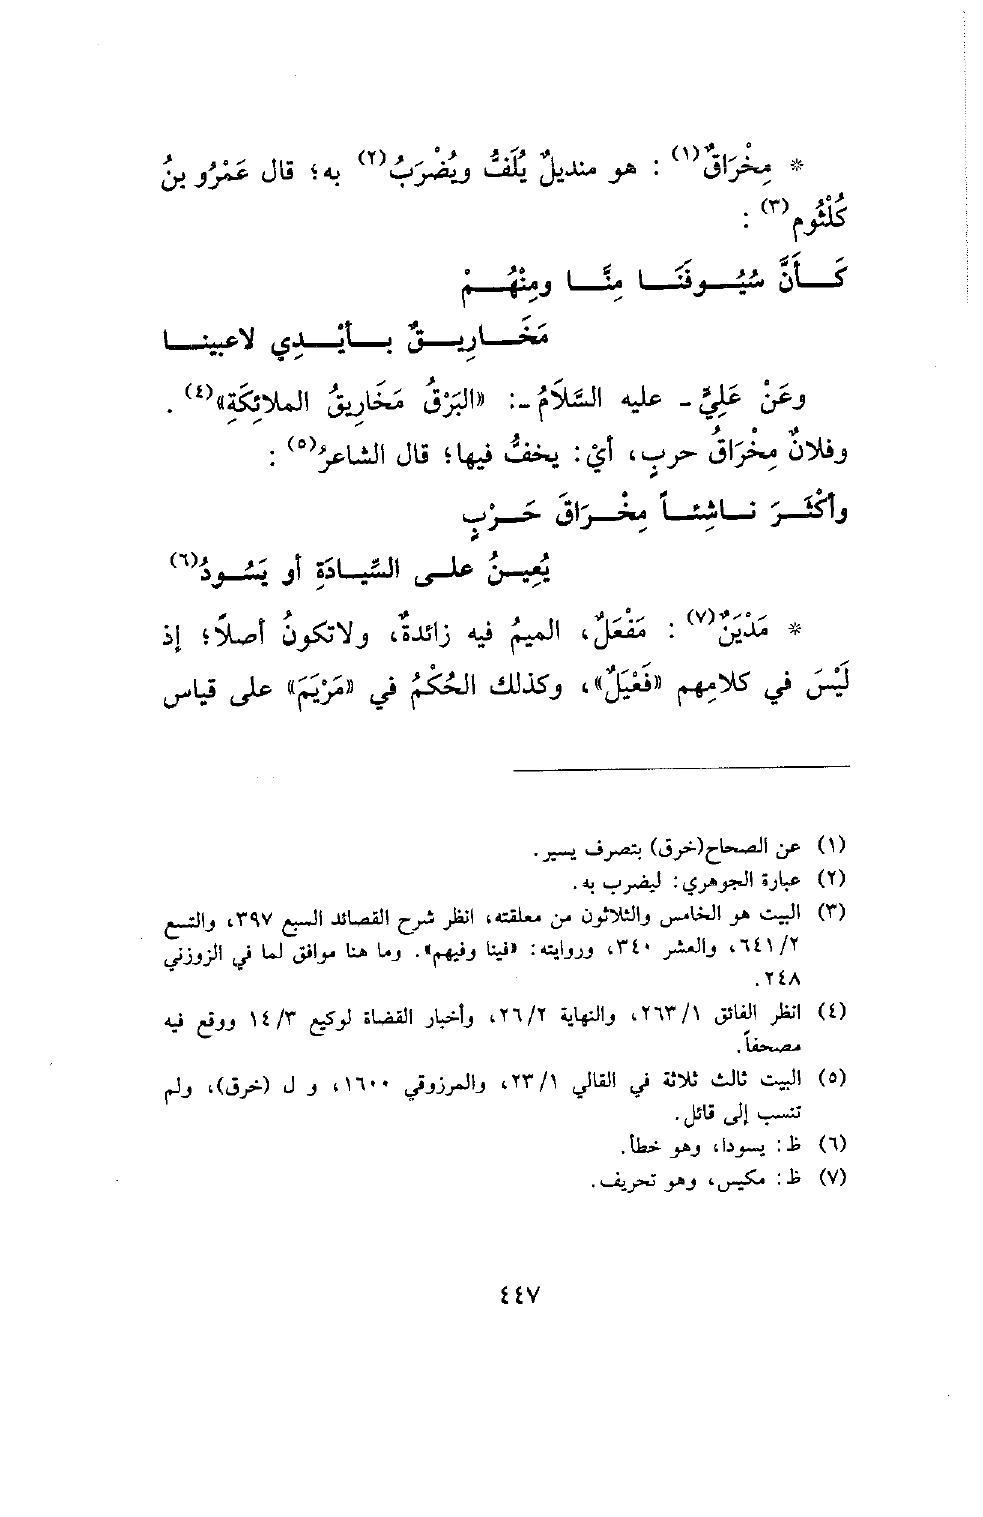 * مِخْرَاقٌ(١) : هو منديلٌ يُلَفُّ ويُضْرَبُ(٢) به؛ قال عَمْرُو بنُ
كُلْثُوم(٣) :
كَـأَنَّ سُيُـوفَنَـا مِنَّـا ومِنْهُـمْ
مَخَـارِيـقٌ بـأيْـدِي لاعبينـا
وعَنْ عَلِيٍّ - عليه السَّلاَمُ -: «البَرْقُ مَخَارِيقُ الملائِكَةِ»(٤) .
وفلانٌ مِخْرَاقُ حربٍ، أيْ: يخفُّ فيها؛ قال الشاعرُ(٥) :
وأكْثَـرَ نـاشِئـاً مِخْـرَاقَ حَـرْبٍ
يُعِيـنُ علـى السِّيـادَةِ أو يَسُـودُ(٦)
* مَدْيَنٌ(٧) : مَفْعَلٌ، الميمُ فيه زائدةٌ، ولاتكونُ أصلاً؛ إذ
لَيْسَ في كلامِهم «فَعْيَلٌ»، وكذلك الحُكْمُ في «مَرْيَمَ» على قياس
(١) عن الصحاح(خرق) بتصرف يسير.
(٢) عبارة الجوهري: ليضرب به.
(٣) البيت هو الخامس والثلاثون من معلقته، انظر شرح القصائد السبع ٣٩٧، والتسع
٢/ ٦٤١، والعشر ٣٤٠، وروايته: «فينا وفيهم». وما هنا موافق لما في الزوزني
٢٤٨.
(٤) انظر الفائق ١/ ٢٦٣، والنهاية ٢/ ٢٦، وأخبار القضاة لوكيع ٣/ ١٤ ووقع فيه
مصحفاً.
(٥) البيت ثالث ثلاثة في القالي ١/ ٢٣، والمرزوقي ١٦٠٠، و ل (خرق)، ولم
تنسب إلى قائل.
(٦) ظ: يسودا، وهو خطأ.
(٧) ظ: مكيس، وهو تحريف.
٤٤٧